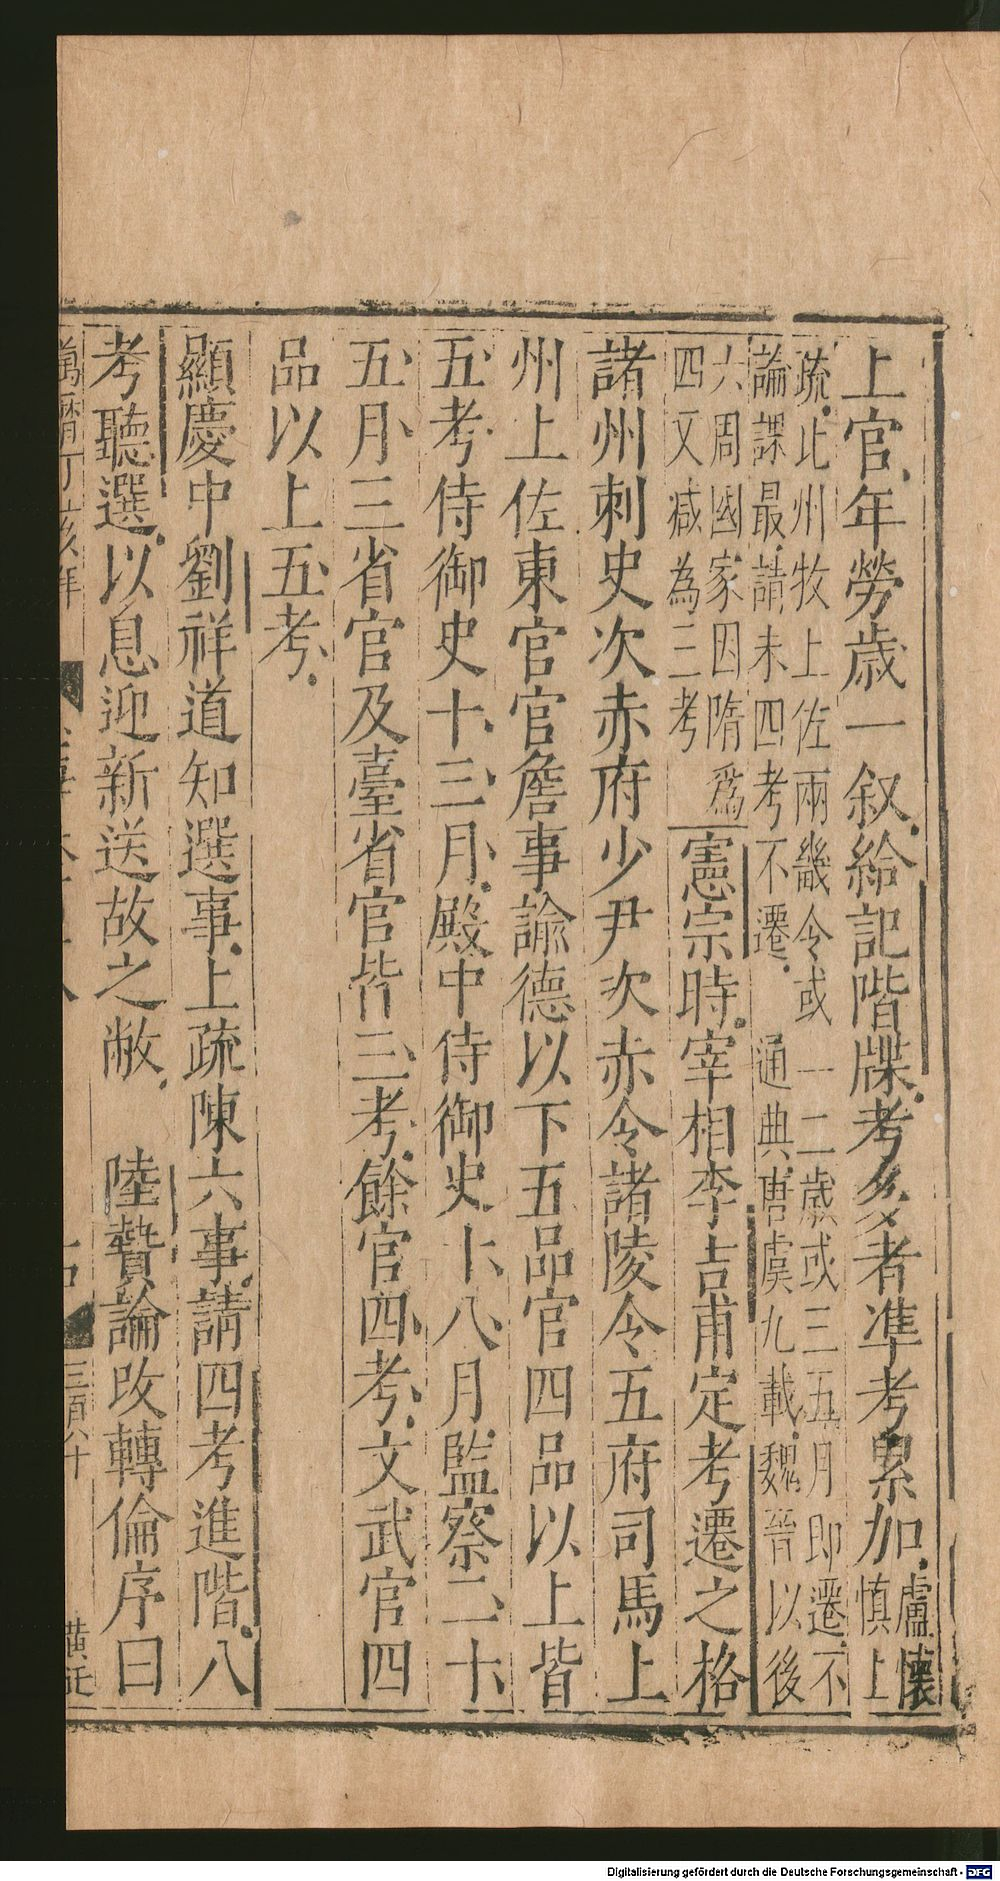 上官年勞歲一叙給記階牒考多者準考累加盧懷慎上
疏此州牧上佐兩畿令或一二歲或三五月即遷不
論課最請未四考不遷 通典唐虞九載魏晉以後
六周國家因隋爲
四又減為三考 憲宗時宰相李吉甫定考遷之格
諸州刺史次赤府少尹次赤令諸陵令五府司馬上
州上佐東官官詹事諭德以下五品官四品以上皆
五考侍御史十三月殿中侍御史十八月監察二十
五月三省官及臺省官皆三考餘官四考文武官四
品以上五考
顯慶中劉祥道知選事上疏陳六事請四考進階八
考聽選以息迎新送故之敝 陸贄論改轉倫序曰
萬曆丁亥年
三百八十
Digitalisierung gefördert durch die Deutsche Forschungsgemeinschaft - DFG